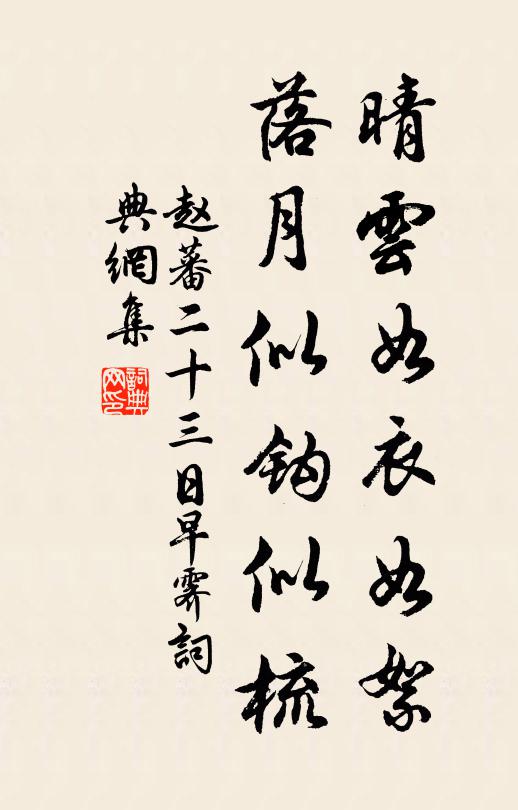 晴雲如衣如絮
落月似鈎似梳
赵蕃二十三日早霽詞
典網集
詞典
网印